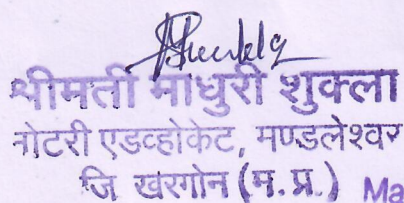 श्रीमती माधुरी शुक्ला
नोटरी एडव्होकेट, मण्डलेश्वर
जि खरगोन (म. प्र.) Ma